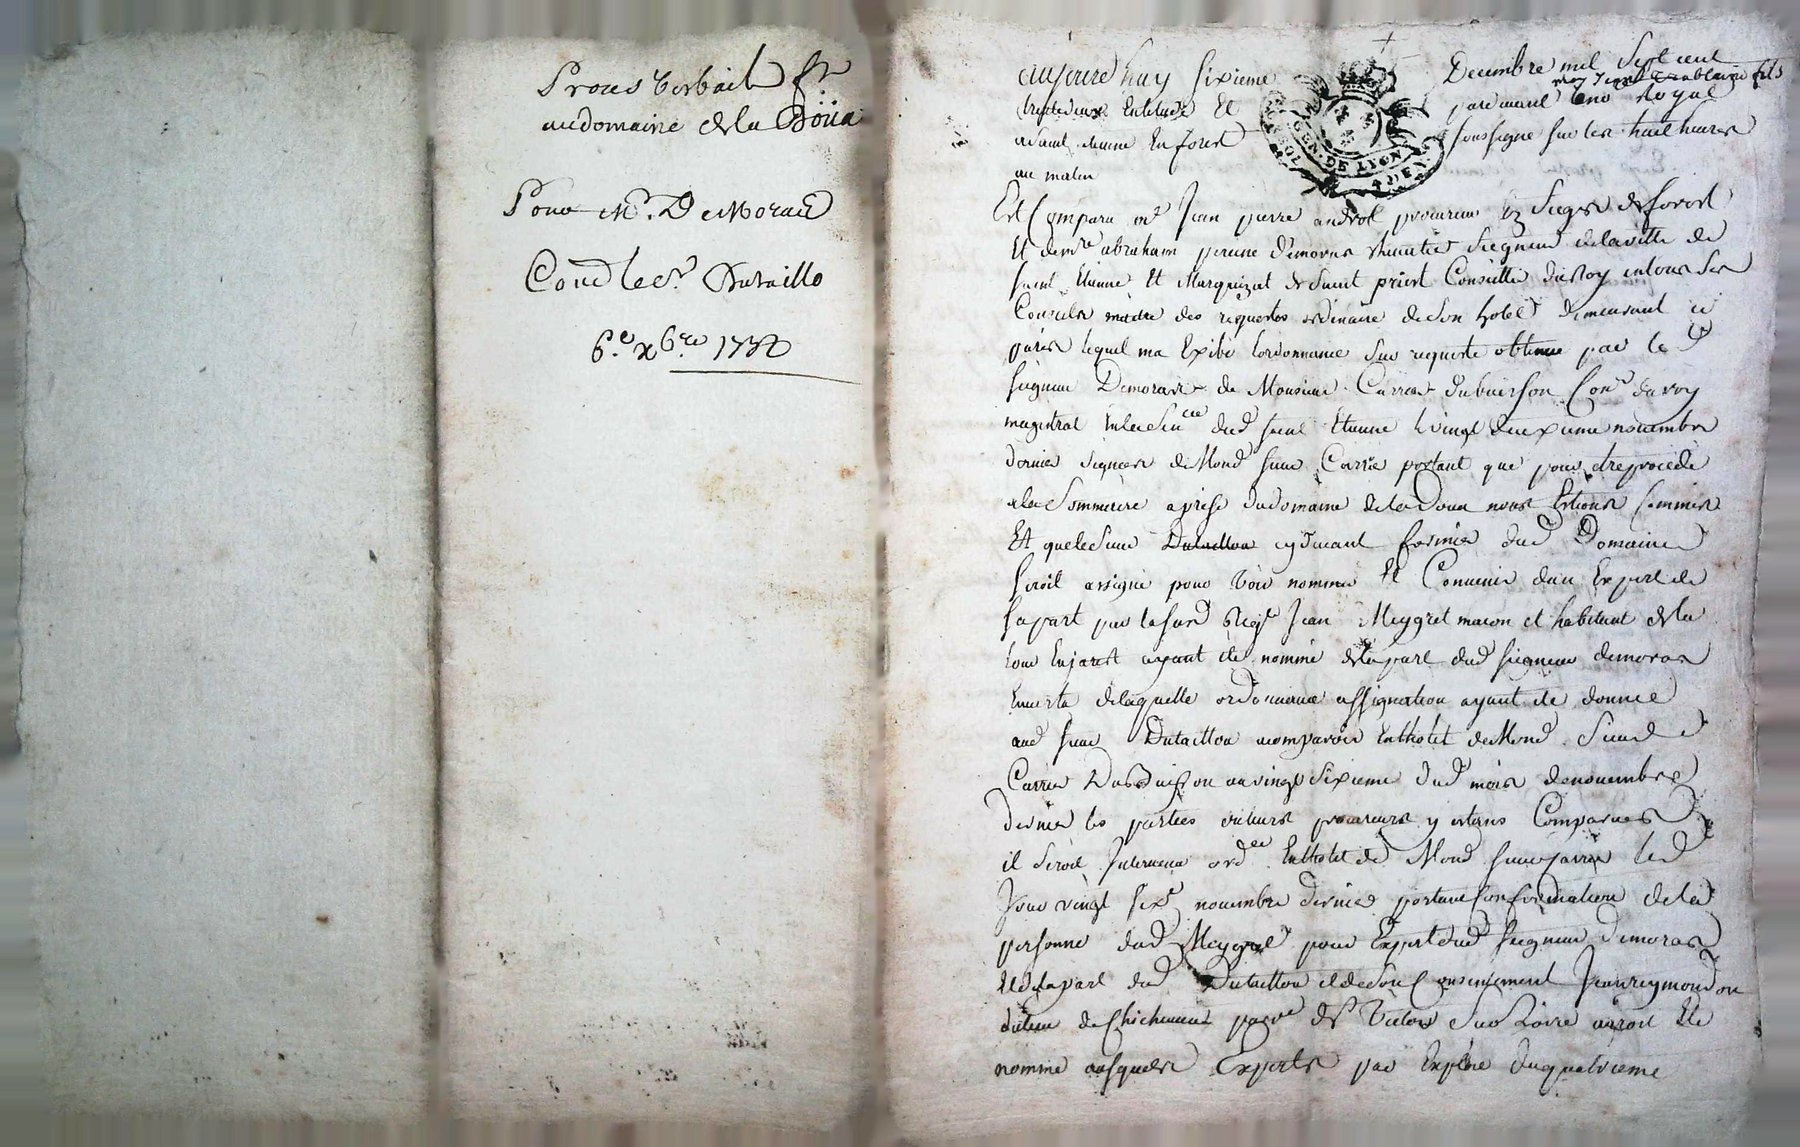 Proces verbail f.t
au domaine de la Doüa
Pour Mr. De Moras
Con.d le Sr. Dutaillo
6.e xbre 1732
aujourd huy sixieme Decembre mil sept cent
trente deux pardevant no.re Royal
soussigné sur les huit heures
au matin
GEN. DE LYON
Est Comparu me Jean pierre androt procureur ez sieges de forest
Et de mre abraham peirenc demoras Seigneur de la ville de
saint Etienne Et Marquizat de Saint priest Conseiller du Roy en tous ses
Conseils maitre des requestes ordinaire de son hotel demeurant a
paris lequel ma Exibé lordonnance sur requeste obtenue par le d
seigneur Demoras de Monsieur Carrier dubuisson Con.r du roy
magistrat dud saint Etienne le vingt deuxieme novembre
dernier signée de Mond sieur Carrier portant que pour etre procédé
a la Sommaire aprise du domaine de la Doua nous Estions commis
Et que le sieur Dutaillou cydevant fermier dud Domaine
seroit assigné pour voir nommer Et Convenir dun Expert de
sa part par la Jean Meygret macon et habitant de la
tour En jarest ayant été nommé de la part dud seigneur demoras
En vertu de laquelle ordonnance assignation ayant été donnée
aud sieur Dutaillou a comparoir En lhotel de Mond Sieur
Carrier Dubuisson au vingt sixieme dud mois de novembre
dernier les parties ou leurs procureurs y estans Comparues
il seroit Intervenu ord.ce En lhotel de Mond sieur Carrier led
Jour vingt six.e novembre dernier portant confirmation de la
personne dud Meygret pour Expert dud seigneur demoras
Et de la part dud Dutaillou et de son consentement Jean reymondon
de Chichivieux par.se de Sur Loire auroit Eté
nommé ausquels Experts par Exploit du quatrieme